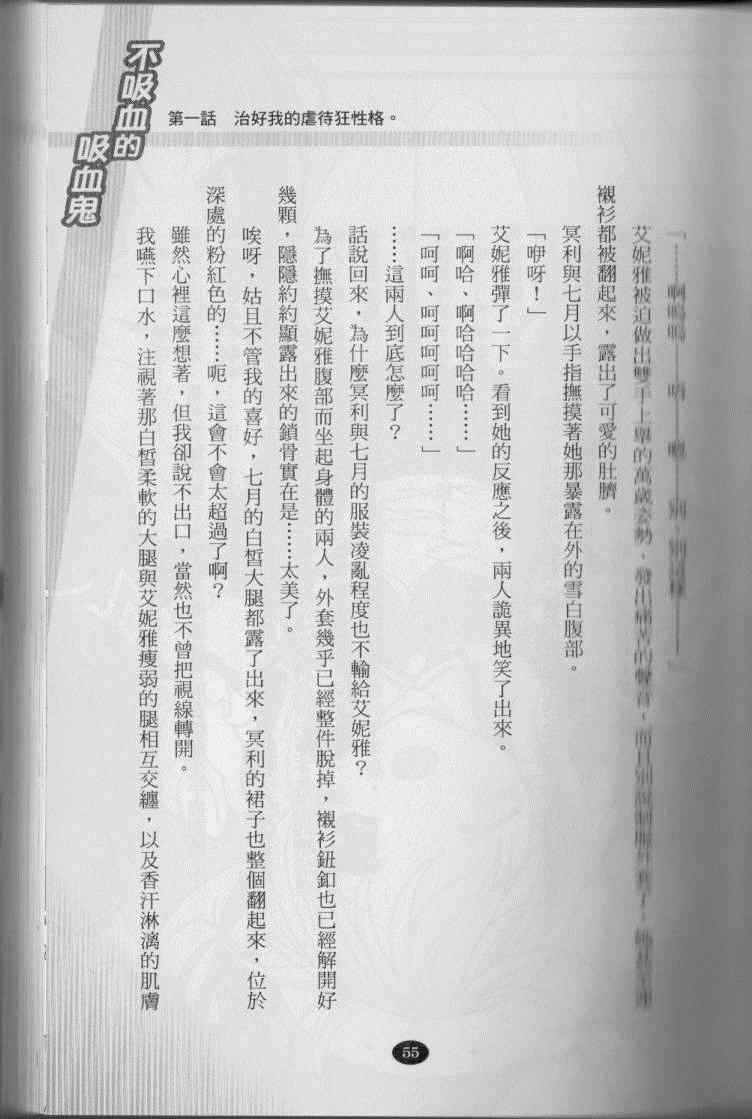 不吸血的
吸血鬼
第一話　治好我的虐待狂性格。
艾妮雅被迫做出雙手上舉的萬歲姿勢，發出痛苦的聲音，而且別說制服外套了，
襯衫都被翻起來，露出了可愛的肚臍。
冥利與七月以手指撫摸著她那暴露在外的雪白腹部。
「咿呀！」
艾妮雅彈了一下。看到她的反應之後，兩人詭異地笑了出來。
「啊哈、啊哈哈哈哈……」
「呵呵、呵呵呵呵呵……」
……這兩人到底怎麼了？
話說回來，為什麼冥利與七月的服裝凌亂程度也不輸給艾妮雅？
為了撫摸艾妮雅腹部而坐起身體的兩人，外套幾乎已經整件脫掉，襯衫鈕釦也已經解開好
幾顆，隱隱約約顯露出來的鎖骨實在是……太美了。
唉呀，姑且不管我的喜好，七月的白皙大腿都露了出來，冥利的裙子也整個翻起來，位於
深處的粉紅色的……呃，這會不會太超過了啊？
雖然心裡這麼想著，但我卻說不出口，當然也不曾把視線轉開。
我嚥下口水，注視著那白皙柔軟的大腿與艾妮雅瘦弱的腿相互交纏，以及香汗淋漓的肌膚
55